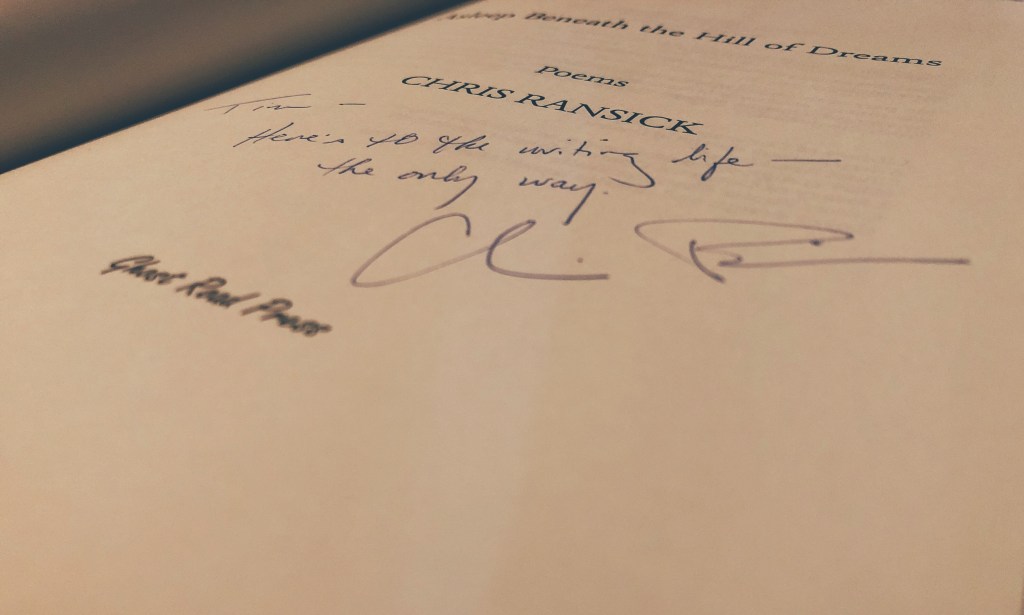 Asleep Beneath the Hill of Dreams
Poems
CHRIS RANSICK
Tim —
Here's to the writing life —
the only way.
Ghost Road Press